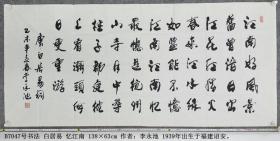 江南好風景
舊曾諳日出
江花紅勝火
春來江水綠
如藍能不憶
江南江南憶
最憶是杭州
山寺月中尋
桂子郡亭枕
上看潮頭何
日更重遊
唐白居易詞
B7047号书法 白居易 忆江南 138×63cm 作者：李永池 1939年出生于福建诏安。